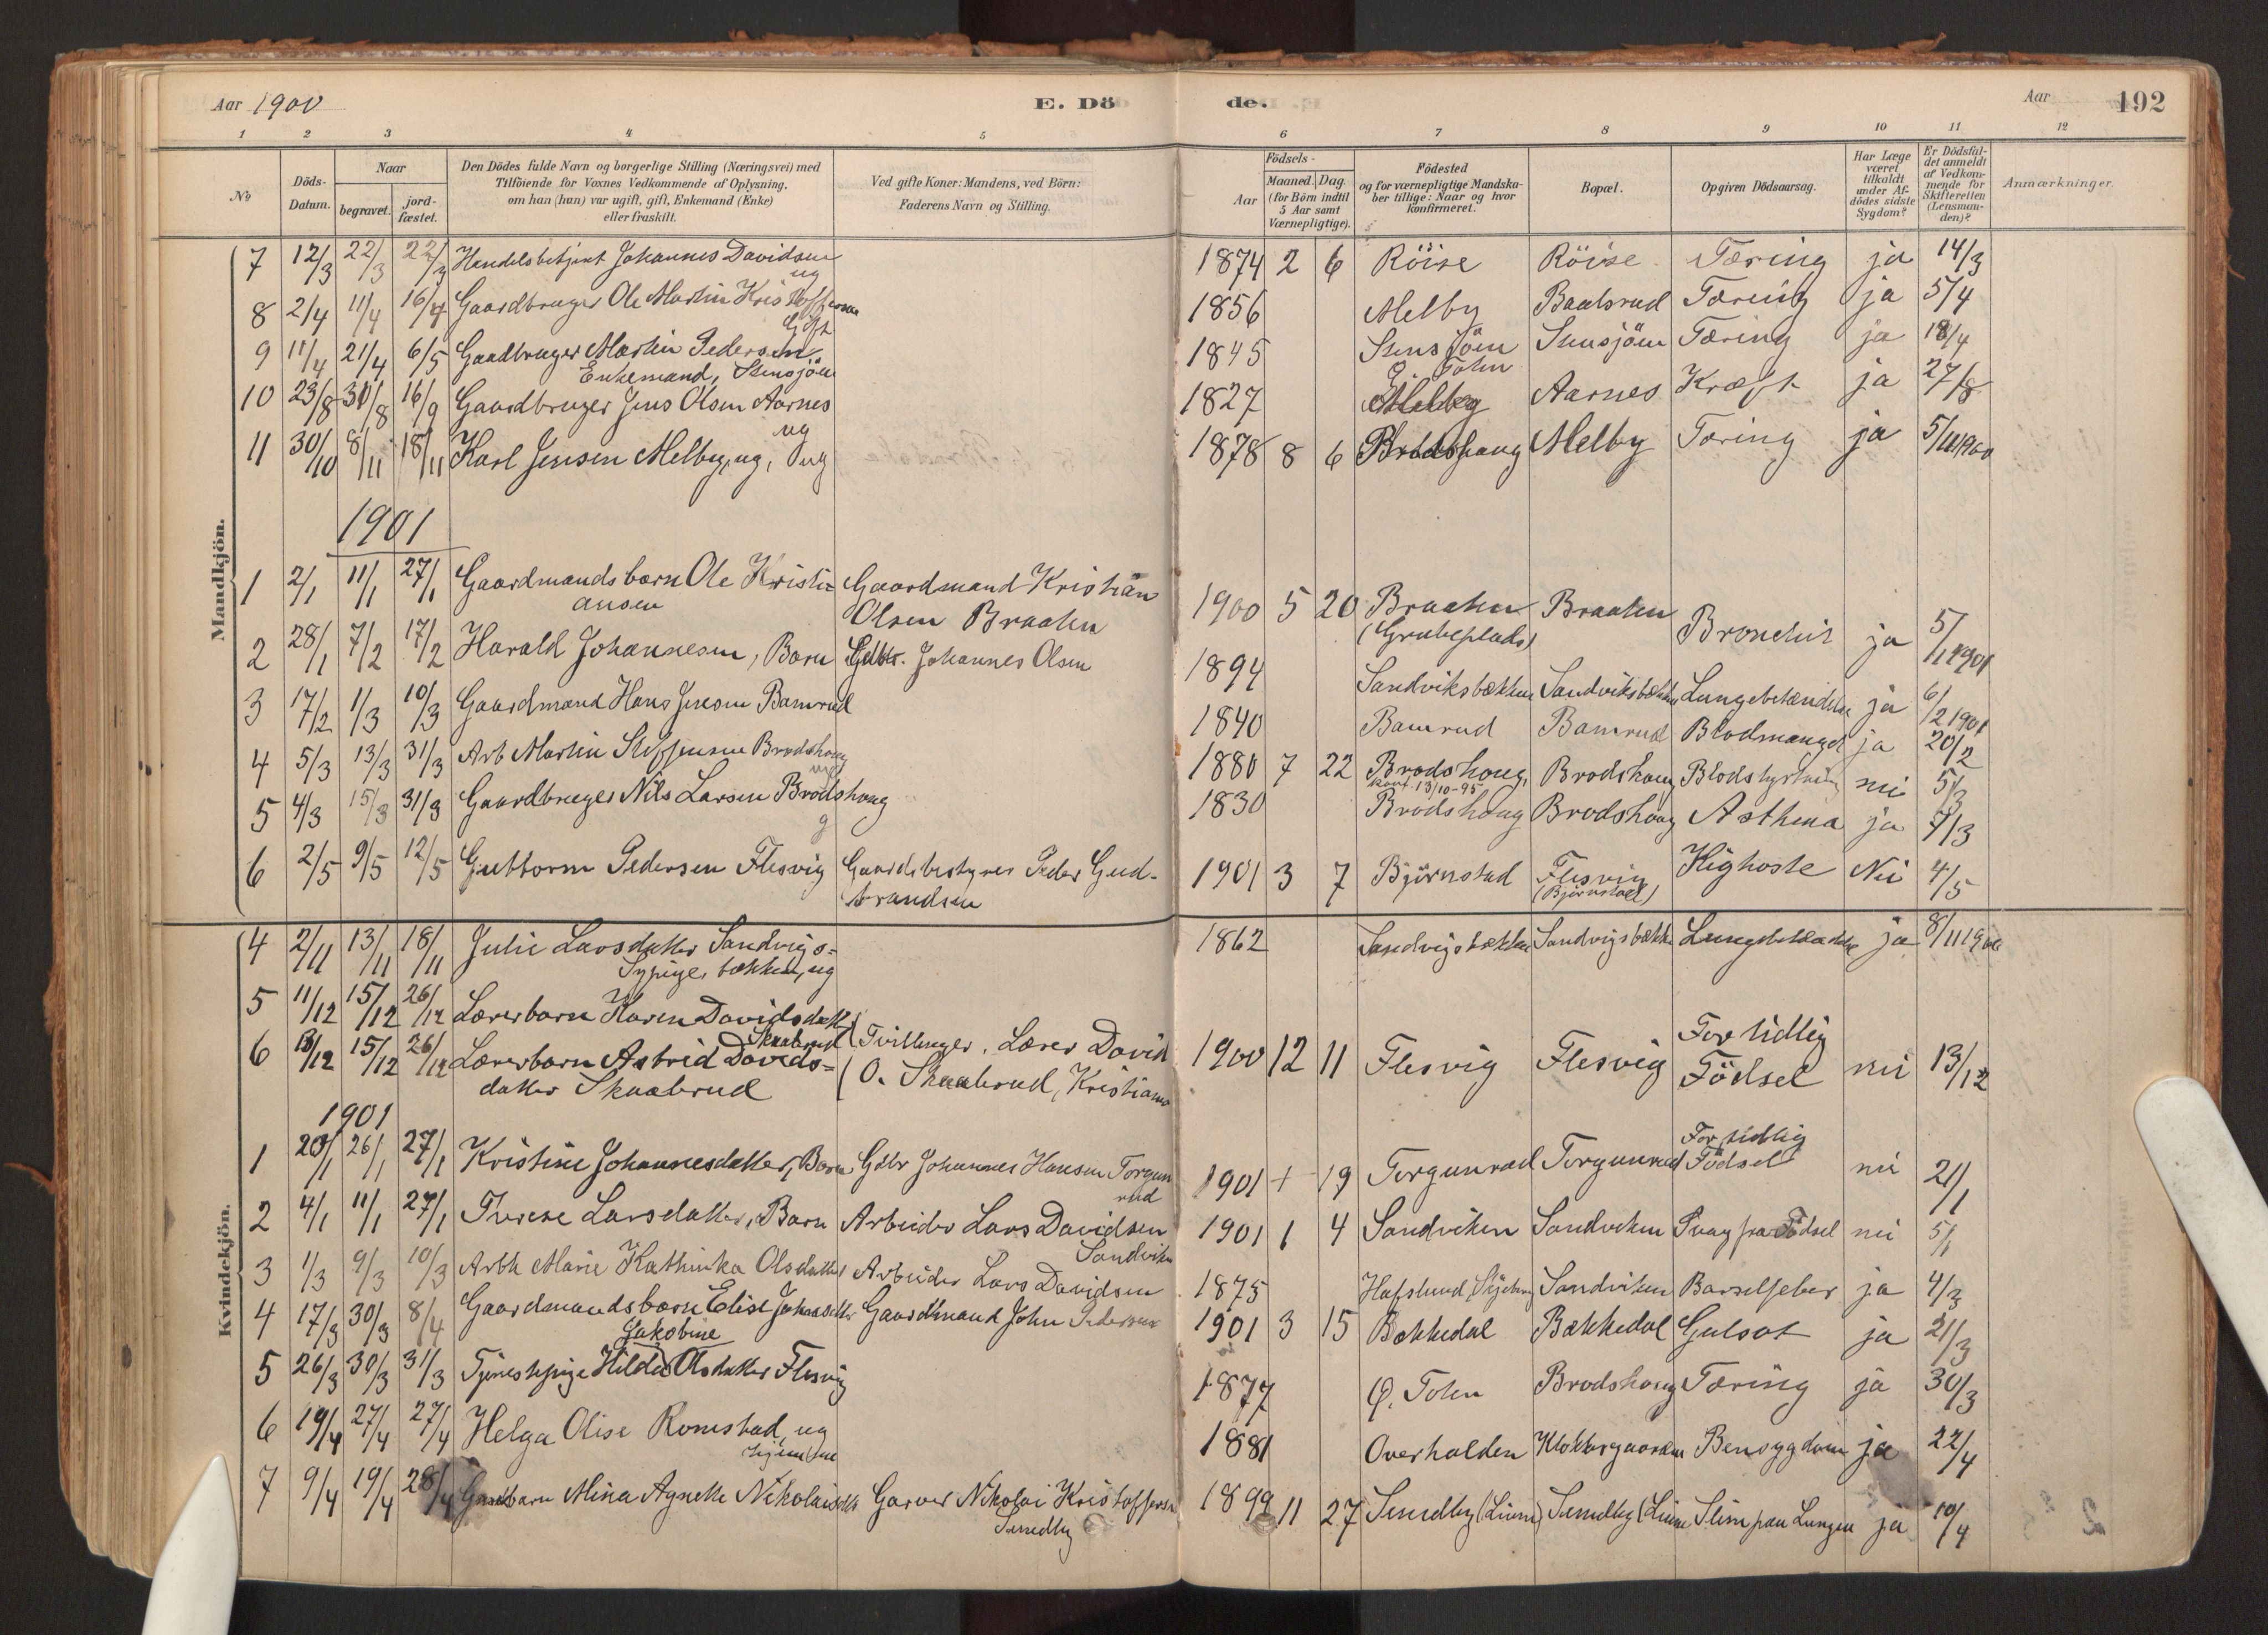 Aar 1900 E. Dö de. Aar 192
1 2 3 4 5 6 7 8 9 10 11 12
No Döds-Datum. Naar begravet. jord-fæstet. Den Dödes fulde Navn og borgerlige Stilling (Næringsvei) med Tilföiende for Voxnes Vedkommende af Oplysning, om han (hun) var ugift, gift, Enkemand (Enke) eller fraskilt. Ved gifte Koner: Mandens, ved Börn: Faderens Navn og Stilling. Födsels- Aar Maaned. Dag (for Börn indtil 5 Aar samt Værnepligtige). Födested og for værnepligtige Mandskaber tillige: Naar og hvor konfirmeret. Bopæl. Opgiven Dödsaarsag. Har Læge været tilkaldt under Afdödes sidste Sygdom? Er Dödsfaldet anmeldt af Vedkommende for Skifteretten (Lensmanden)? Anmærkninger.
Mandkjön.
7 12/3 22/3 22/3 Handelsbetjent Johannes Davidsen ug 1874 2 6 Röise Röise Tæring ja 14/3
8 2/4 11/4 16/4 Gaardbruger Ole Martin Kristoffersen Gift 1856 Melby Baalsrud Tæring ja 5/4
9 11/4 21/4 6/5 Gaardbruger Martin Pedersen Enkemand, Stensjöen 1845 Stensjöen Stensjöen Tæring ja 18/4
10 23/8 31/8 16/9 Gaardbruger Jens Olsen Aarnes 1827 Ö. Tohn Aarnes Kræft ja 27/8
11 30/10 8/11 18/11 Karl Jensen Melby, ug, ug 1878 8 6 Brodshaug Melby Tæring ja 5/11 1900
1901
1 2/1 11/1 27/1 Gaardmandsbarn Ole Kristiansen Gaardmand Kristian Olsen Braaten 1900 5 20 Braaten (Grubeplads) Braaten Bronchit ja 5/1 1901
2 28/1 7/2 17/2 Harald Johannesen, Barn Gdbr. Johannes Olsen 1894 Sandviksbækken Sandviksbækken Lungebetændelse ja 6/2 1901
3 17/2 1/3 10/3 Gaardmand Hans Jensen Bamrud 1840 Bamrud Bamrud Blodmangel ja 20/2
4 5/3 13/3 31/3 Arb Martin Steffensen Brodshaug ug 1880 7 22 Brodshaug, konf 13/10-95 Brodshaug Blodstyrtning nei 5/3
5 4/3 15/3 31/3 Gaardbruger Nils Larsen Brodshaug g 1830 Brodshaug Brodshaug Asthma ja 7/3
6 2/5 9/5 12/5 Guttorm Pedersen Flesvig Gaardsbestyrer Peder Gudbrandsen 1901 3 7 Björnstad Flesvig (Björnstad) Kighoste Nei 4/5
Kvindekjön.
4 2/11 13/11 18/11 Julie Larsdatter Sandvigsbækken, ug Sypige 1862 Sandvigsbækken Sandvigsbækken Lungebetændelse ja 8/11 1900
5 11/12 15/12 26/12 Lærerbarn Karen Davidsdatter Skaabrud
6 13/12 15/12 26/12 Lærerbarn Astrid Davidsdatter Skaabrud Tvillinger. Lærer David O. Skaabrud, Kristiania 1900 12 11 Flesvig Flesvig For tidlig Födsel nei 13/12
1901
1 20/1 26/1 27/1 Kristine Johannesdatter, Barn Gdbr Johannes Hansen Torgunrud 1901 + 19 Torgunrud Torgunrud For tidlig Födsel nei 21/1
2 4/1 11/1 27/1 Therese Larsdatter, Barn Arbeider Lars Davidsen Sandviken 1901 1 4 Sandviken Sandviken Svag fra Födsel nei 5/1
3 1/3 9/3 10/3 Arbk Marie Kathinka Olsdatter Arbeider Lars Davidsen 1875 Hafslund, Skjeberg Sandviken Barselfeber ja 4/3
4 17/3 30/3 8/4 Gaardmandsbarn Elise Johnsdatter Gaardmand John Pedersen 1901 3 15 Bækkedal Bækkedal Gulsot ja 21/3
5 26/3 30/3 31/3 Tjenestepige Hilda Jakobine Olsdatter Flesvig 1877 Ö. Tohn Brodshaug Tæring ja 30/3
6 19/4 27/4 27/4 Helga Olise Romstad, ug hjemme 1881 Overhalden Klokkergaarden Bensygdom ja 22/4
7 9/4 19/4 28/4 Garverbarn Mina Agnethe Nikolaisdtr Garver Nikolai Kristoffersen Smedby 1899 11 27 Smedby (Lium) Smedby (Lium) Slim paa Lungen ja 10/4